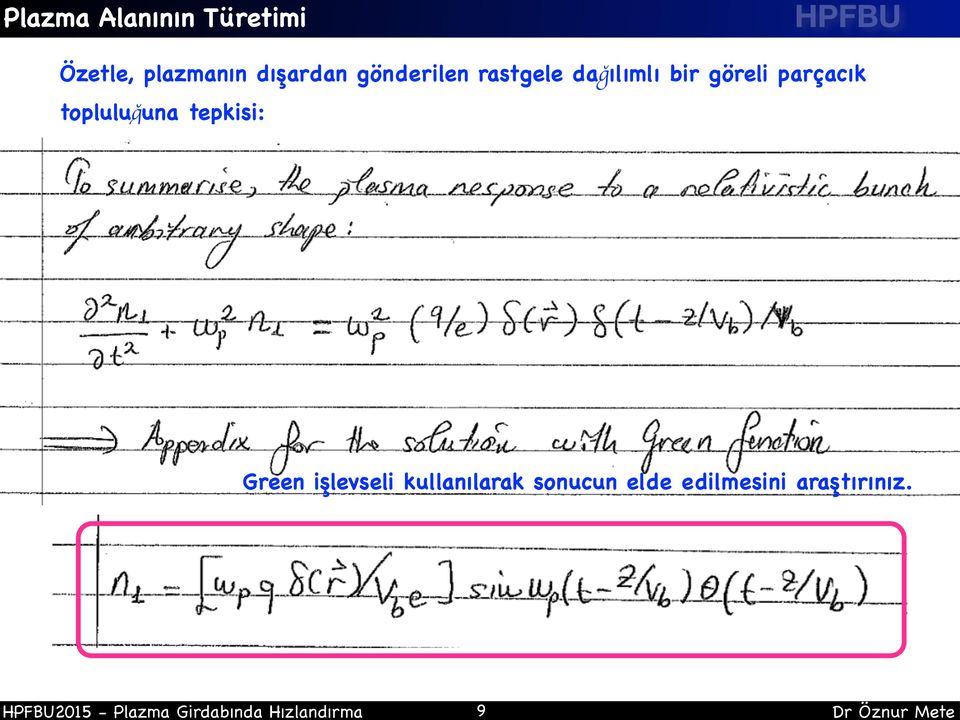 Plazma Alanının Türetimi
HPFBU
Özetle, plazmanın dışardan gönderilen rastgele dağılımlı bir göreli parçacık
topluluğuna tepkisi:
To summarise, the plasma response to a relativistic bunch
of arbitrary shape:
∂²n₁/∂t² + ωp² n₁ = ωp² (q/e) δ(r⃗) δ(t - z/Vb)/Vb
⟹ Appendix for the solution with Green function
Green işlevseli kullanılarak sonucun elde edilmesini araştırınız.
n₁ = [ωp q δ(r⃗)/Vb e] sin ωp(t - z/Vb) θ(t - z/Vb)
HPFBU2015 - Plazma Girdabında Hızlandırma 9 Dr Öznur Mete